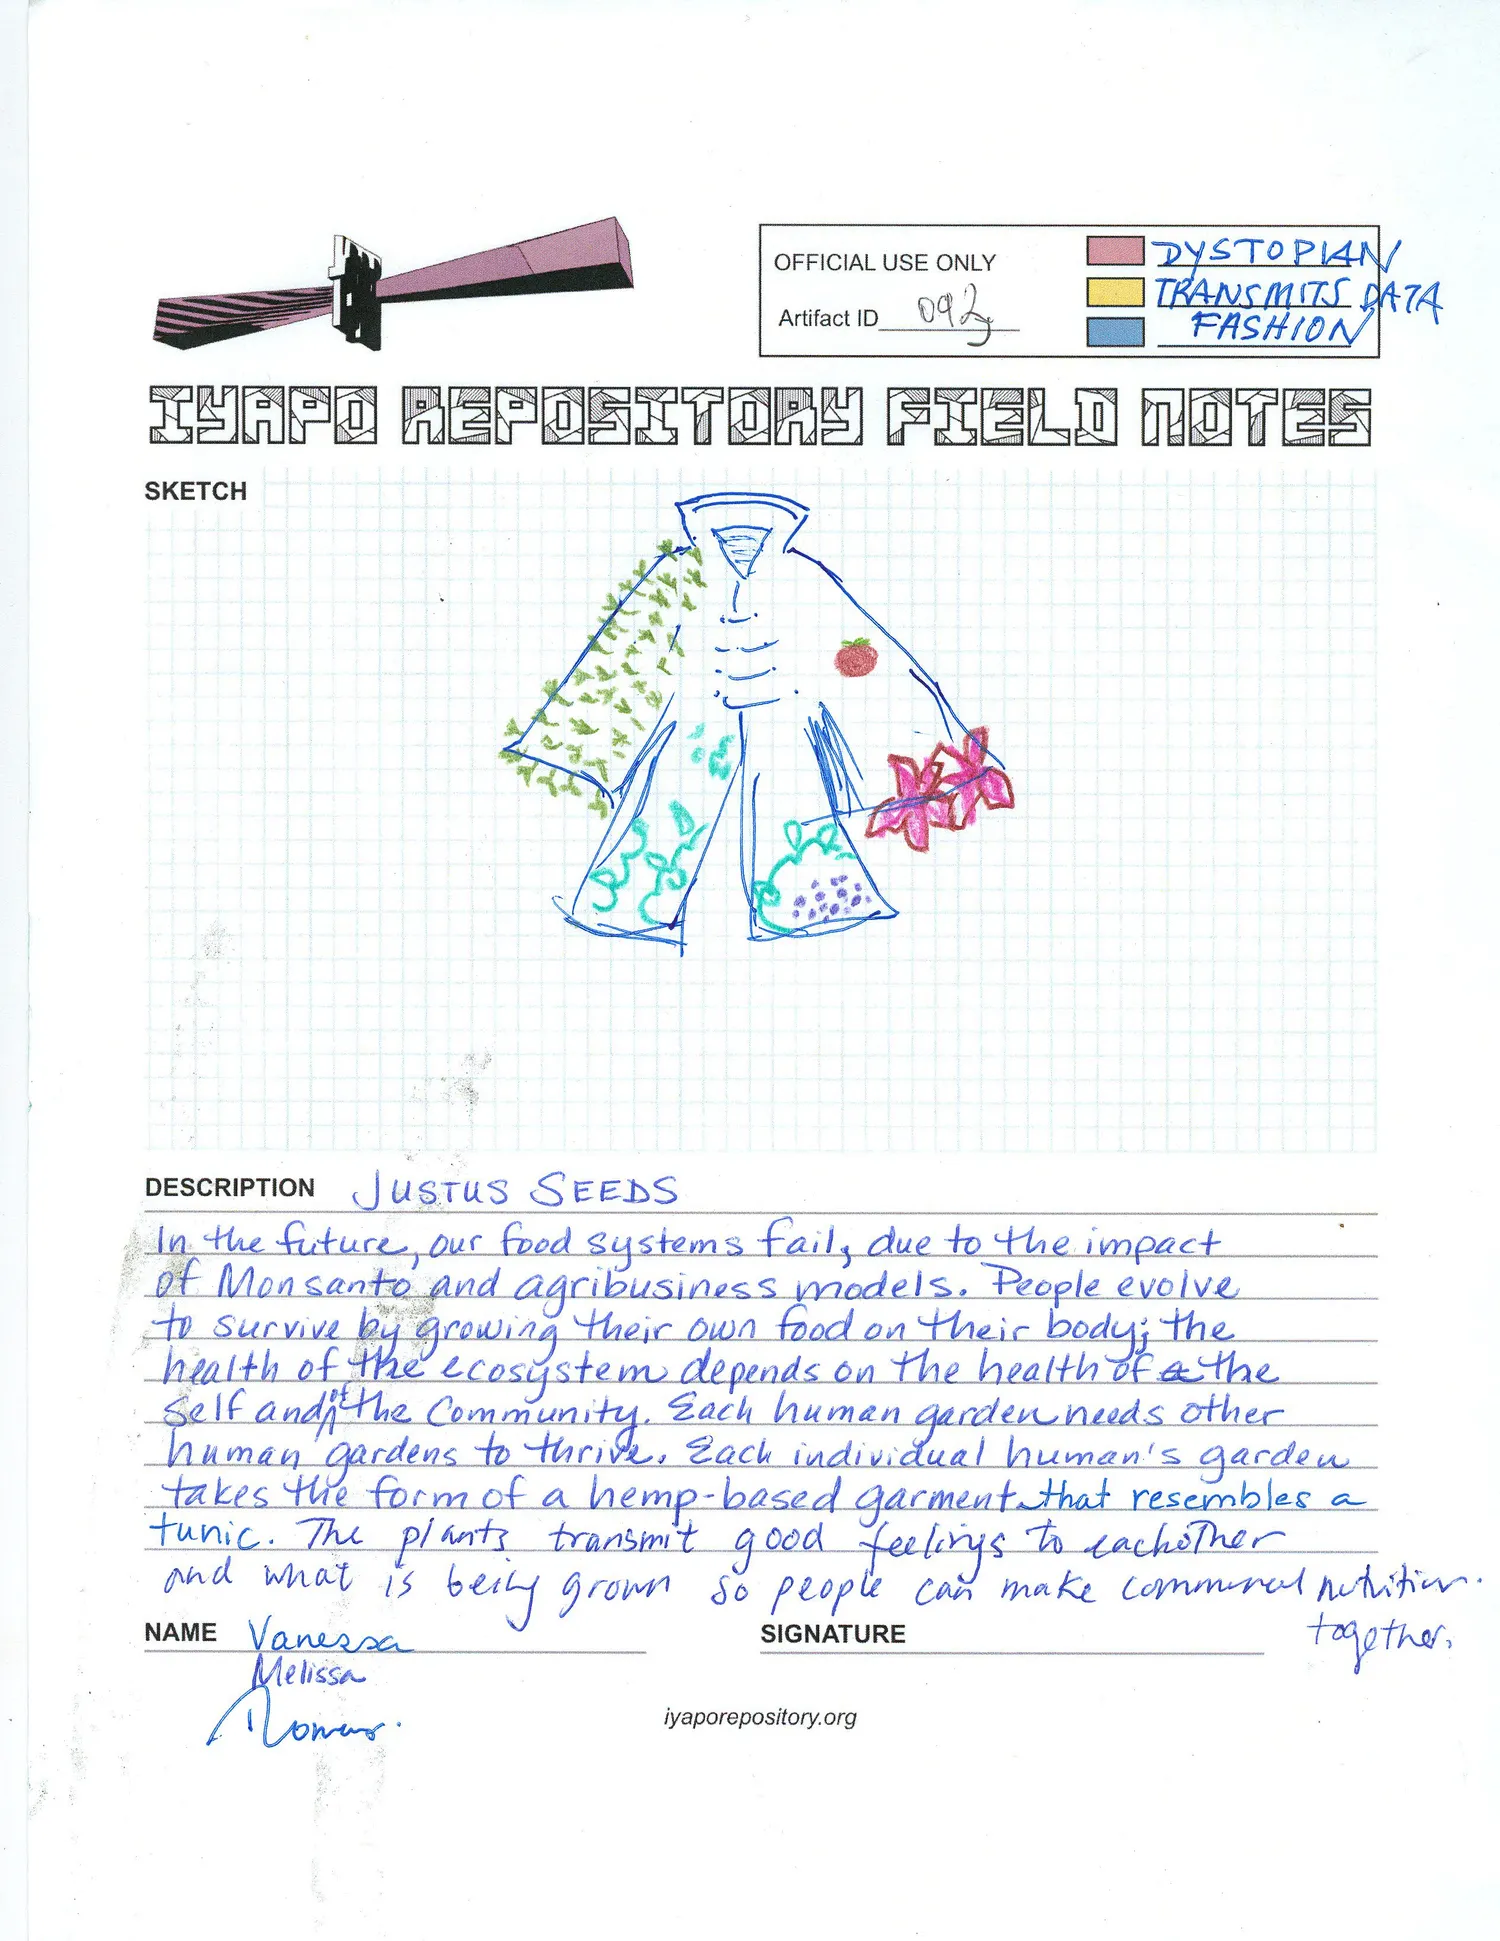 OFFICIAL USE ONLY
Artifact ID 092
DYSTOPIAN
TRANSMITS DATA
FASHION
IYAPO REPOSITORY FIELD NOTES
SKETCH
DESCRIPTION JUSTUS SEEDS
In the future, our food systems fail, due to the impact
of Monsanto and agribusiness models. People evolve
to survive by growing their own food on their body; the
health of the ecosystem depends on the health of the
self and of the community. Each human garden needs other
human gardens to thrive. Each individual human's garden
takes the form of a hemp-based garment that resembles a
tunic. The plants transmit good feelings to eachother
and what is being grown so people can make communal nutrition
together.
NAME Vanessa
Melissa
SIGNATURE
iyaporepository.org